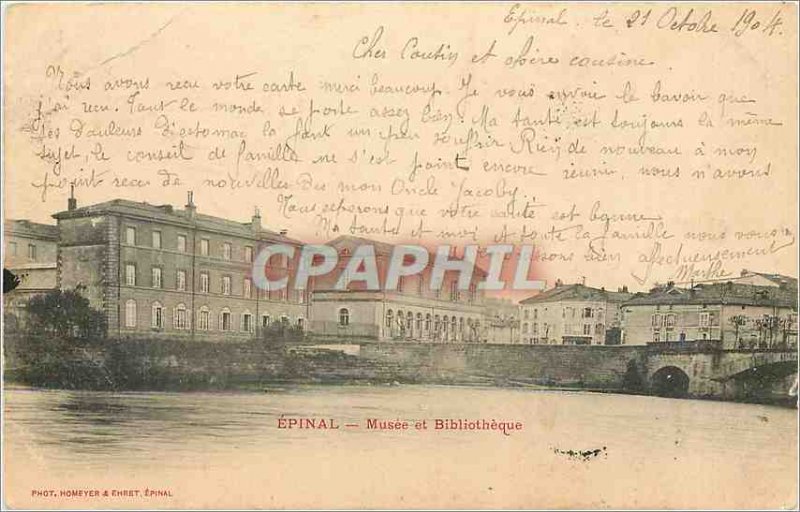 Epinal, le 21 Octobre 1904.
Cher Cousin et chère cousine
Nous avons recu votre carte merci beaucoup. Je vous envoie le bavoir que
j'ai recu. Tout le monde se porte assez bien. Ma tante est toujours la même
les douleurs d'estomac la font un peu souffrir Rien de nouveau à mon
sujet, le conseil de famille ne s'est point encore réuni, nous n'avons
point recu de nouvelles de mon Oncle Jacoby.
Nous esperons que votre santé est bonne
Ma tante et moi et toute la famille vous
bien affectueusement
Marthe
CPAPHIL.com
ÉPINAL — Musée et Bibliothèque
PHOT. HOMEYER & EHRET, ÉPINAL